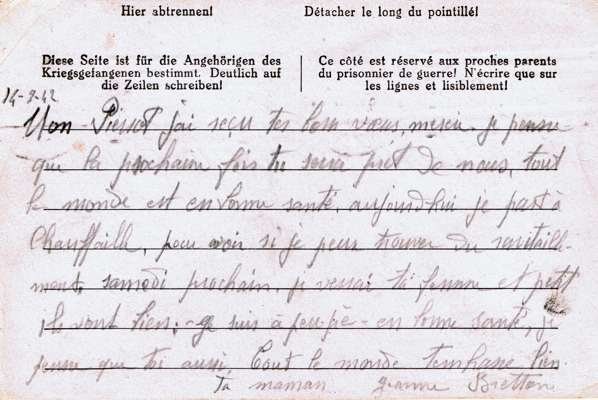 Hier abtrennen!
Détacher le long du pointillé!
Diese Seite ist für die Angehörigen des
Kriegsgefangenen bestimmt. Deutlich auf
die Zeilen schreiben!
Ce côté est réservé aux proches parents
du prisonnier de guerre! N'écrire que sur
les lignes et lisiblement!
Mon Pierrot j'ai reçu tes bon vœus, merci. je pense
que la prochaine fois tu sera prêt de nous, tout
le monde est en bonne santé. aujourd'hui je part à
Chauffaille, pour voir si je peux trouver du ravitaille-
ment, samedi prochain. je verrai ta femme et petit
ils vont bien, je suis à peu-pré en bonne santé, je
pense que toi aussi, Tout le monde t'embrasse bien.
Ta maman Jeanne Bretton